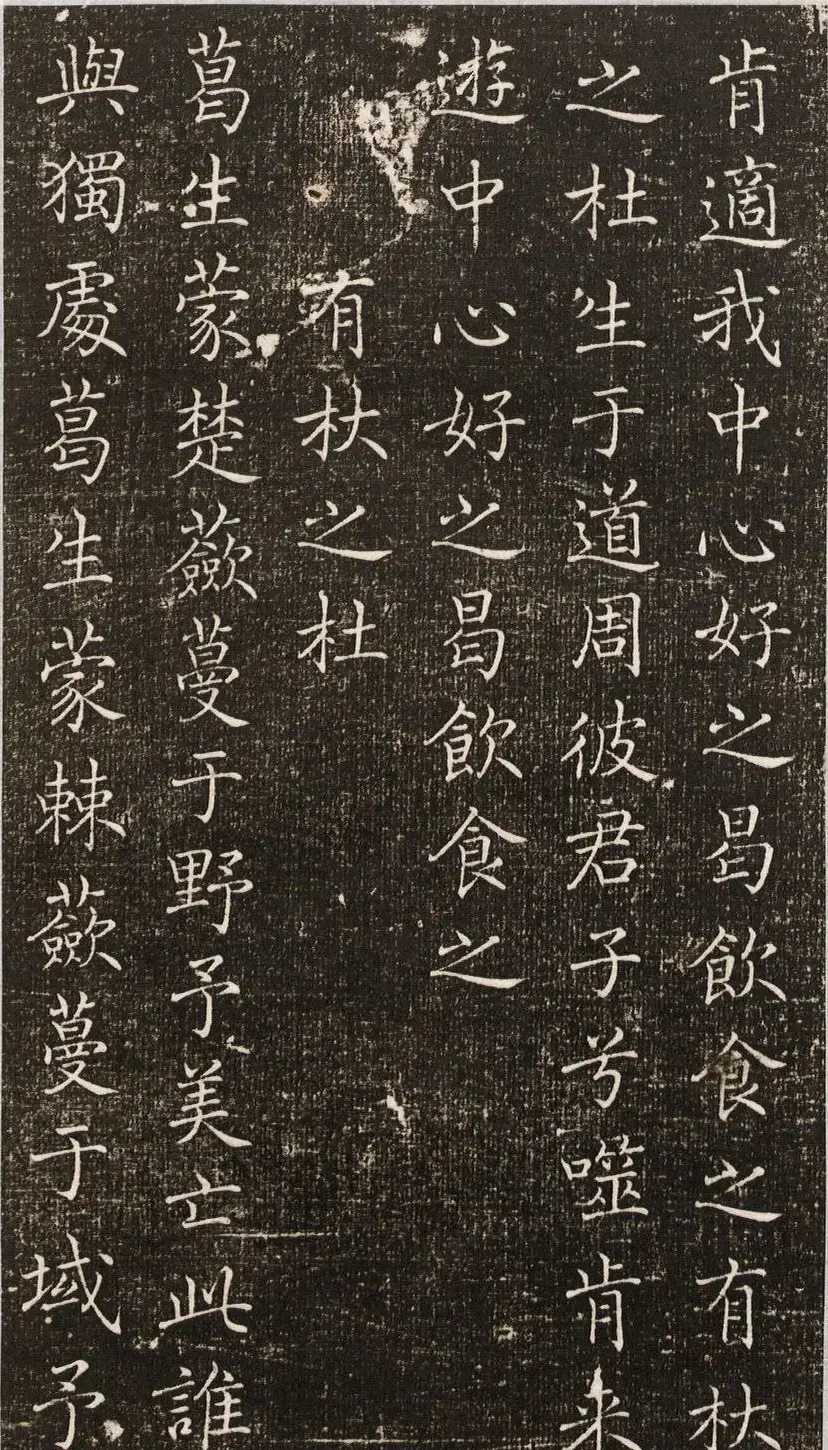 肯適我中心好之曷飲食之有杕
之杜生于道周彼君子兮噬肯来
遊中心好之曷飲食之
有杕之杜
葛生蒙楚蘞蔓于野予美亡此誰
與獨處葛生蒙棘蘞蔓于域予